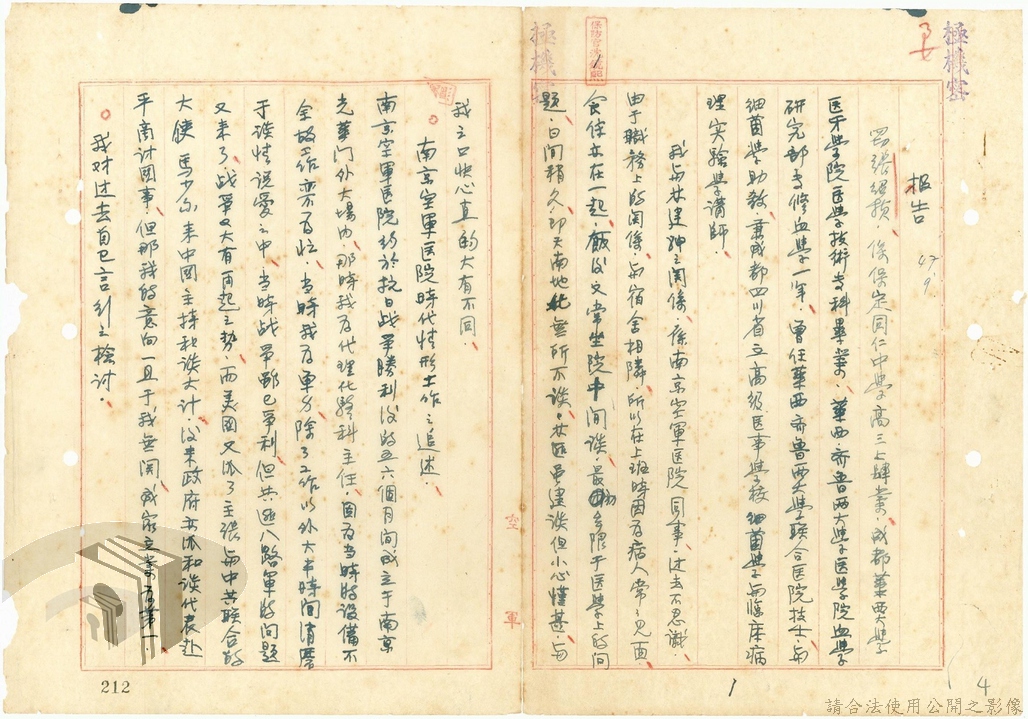 極機密
報告
47.9
張紹毅，係保定同仁中學高三上肄業，成都華西大學
医牙學院医學技術专科畢業，華西齐鲁两大學医學院血學
研究部专修血學一年，曾任華西齐鲁两大學联合医院技士，与
細菌學助教，兼成都四川省立高級医事學校細菌學与临床病
理实验學講師。
我与林建坤之関係，係南京空軍医院同事，过去不忍識，
由于職務上的関係，与宿舍相隣，所以在上班時因为病人常々見面
食住亦在一起，飯後又常坐院中间谈，最初多限于医學上的问
極機密
題，日间稍久，即天南地北無所不谈，林匪虽建谈但小心慬甚，与
我之口快心真的大有不同。
南京空軍医院時代情形工作之追述。
南京空軍医院約於抗日战爭勝利後的五六個月间成立于南京
光華门外大場内，那時我为代理化驗科主任，因为当時的设備不
全故工作亦不忙，当時我为軍友，除了工作以外大半時间消磨
于谈情说爱之中，当時战爭虽已爭利但共匪八路軍的问題
又来了，战軍又大有再起之勢，而美國又派了主張与中共联合的
大使馬少尔来中國主持和谈大计，後来政府亦派和谈代表赴
平商讨國事，但那我的意向一直于我無関，成家立業为第一。
我对过去自己言行之檢讨。
空軍
212
1
4
請合法使用公開之影像